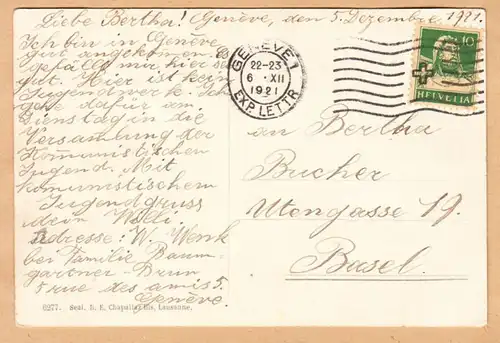 Liebe Bertha! Genève, den 5. Dezember 1921.
Ich bin in Genève
gut angekommen. Es
gefällt mir hier sehr
gut. Hier ist kein
Jugendwerk. Ich
gehe dafür am
Dienstag in die
Versamlung der
Komunistischen
Jugend. Mit
komunistischem
Jugendgruss
dein Willi.
Adresse: W. Wenk
bei Familie Baum-
gartner-Brun
5 rue des amis 5.
Genève.
GENÈVE 1
22-23
6 · XII
1921
EXP. LETTR.
10
HELVETIA
an Bertha
Bucher
Utengasse 19.
Basel.
6277. Soci. R. E. Chapallaz fils, Lausanne,